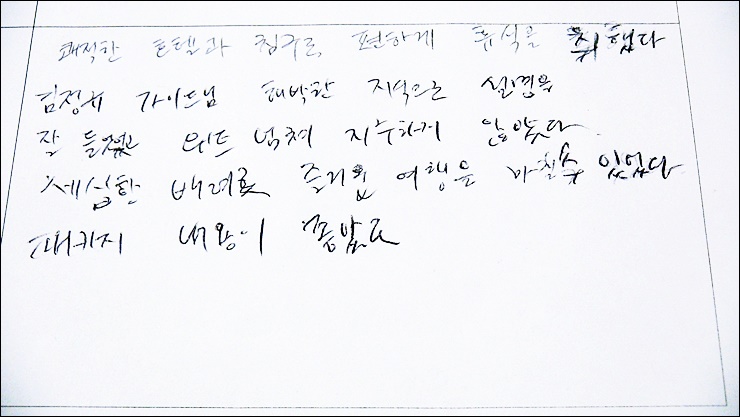 쾌적한 호텔과 침구로 편하게 휴식을 취했다
김정규 가이드님 해박한 지식으로 설명을
잘 들었고 위트 넘쳐 지루하게 않았다
세심한 배려로 즐거운 여행을 마칠 수 있었다
패키지 내용이